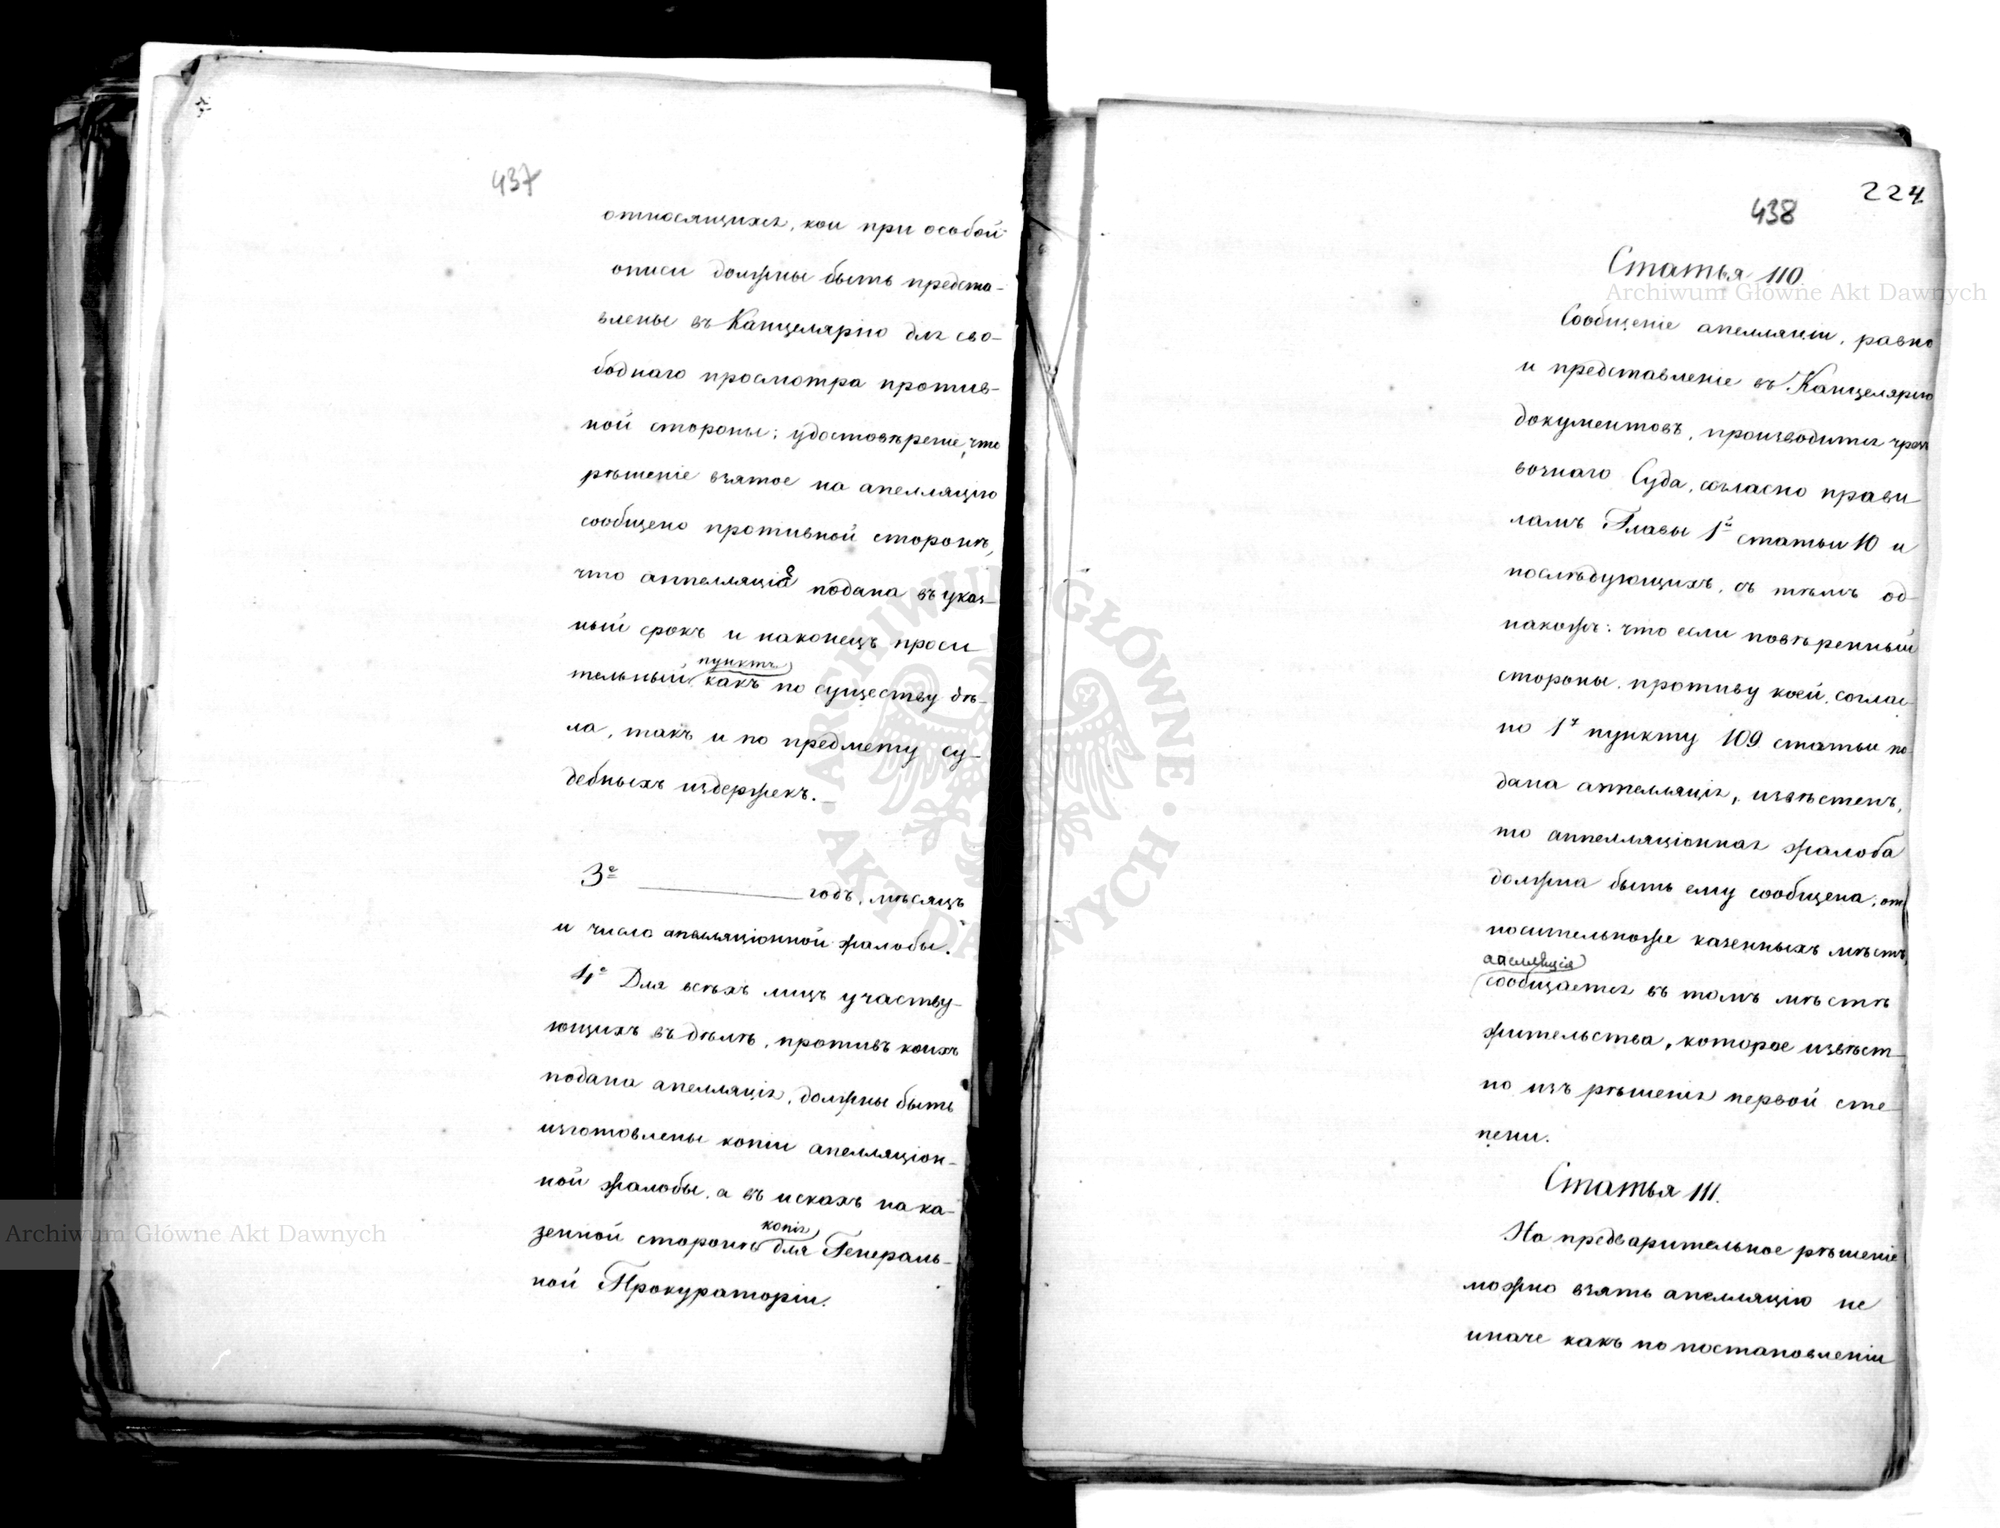 437
относящихся, кои при особой
описи должны быть предста-
влены въ Канцелярію для сво-
боднаго просмотра против-
ной стороны; удостовѣреніе, что
рѣшеніе взятое на апелляцію
сообщено противной сторонѣ,
что аппелляція подана въ указ-
ный срокъ и наконецъ проси
пунктъ
тельный какъ по существу дѣ-
ла, такъ и по предмету су-
дебныхъ издержекъ.
3е годъ, мѣсяцъ
и число апелляціонной жалобы.
4е Для всѣхъ лицъ участву-
ющихъ въ дѣлѣ, противъ коихъ
подана апелляція, должны быть
изготовлены копіи апелляціон-
ной жалобы, а въ искахъ на ка-
копія
зенной сторонѣ для Генераль-
ной Прокураторіи.
224
438
Статья 110
Сообщеніе апелляціи, равно
и представленіе въ Канцелярію
документовъ, производится чрез
вознаго Суда, согласно прави
ламъ Главы 1й статьи 10 и
послѣдующихъ, съ тѣмъ од-
накожъ: что если повѣренный
стороны, противу коей, соглас-
но 1у пункту 109 статьи по
дана аппелляція, извѣстенъ,
то аппелляціонная жалоба
должна быть ему сообщена; от
носительноже казенныхъ мѣстъ,
апелляція
сообщается въ томъ мѣстѣ
жительства, которое извѣст-
но изъ рѣшенія первой сте-
пени.
Статья 111.
На предварительное рѣшеніе
можно взять апелляцію не
иначе какъ по постановленіи
Archiwum Główne Akt Dawnych
Archiwum Główne Akt Dawnych
ARCHIWUM GŁÓWNE · AKT DAWNYCH ·